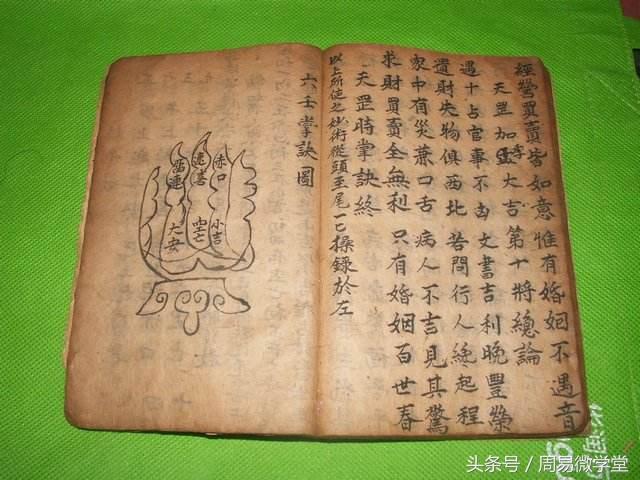 經營買賣皆如意惟有婚姻不遇音
天罡加孟大吉第十將總論
遇十占官事不凶文書吉利晚豐榮
遺財失物俱西北若問行人總起程
家中有災兼口舌病人不吉見其驚
求財買賣全無利只有婚姻百世春
天罡時掌訣終
以上所使之妙術從頭至尾一一操錄於左
六壬掌訣圖
留連
速喜
赤口
大安
空亡
小吉
头条号 / 周易微学堂